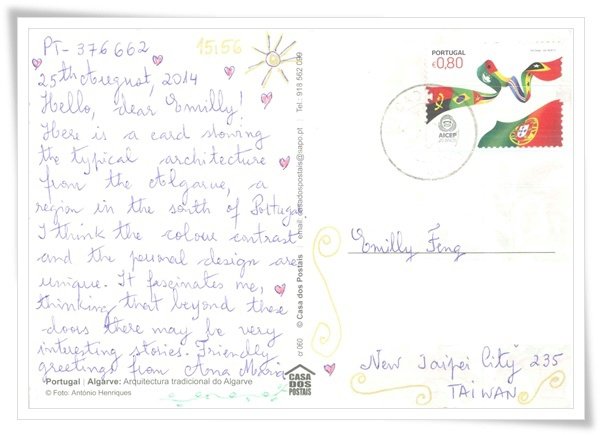 PT-376662
15:56
25th August, 2014
Hello, dear Emilly!
Here is a card showing
the typical architecture
from the Algarve, a
region in the south of Portugal.
I think the colour contrast
and the personal design are
unique. It fascinates me,
thinking that beyond these
doors there may be very
interesting stories. Friendly
greetings from Ana Maria
Portugal | Algarve: Arquitectura tradicional do Algarve
© Foto: António Henriques
cr 060 © Casa dos Postais email: casadospostais@sapo.pt Tel.: 918 562 099
CASA
DOS
POSTAIS
PORTUGAL
€0,80
AICEP
Emilly Feng
New Taipei City 235
TAIWAN